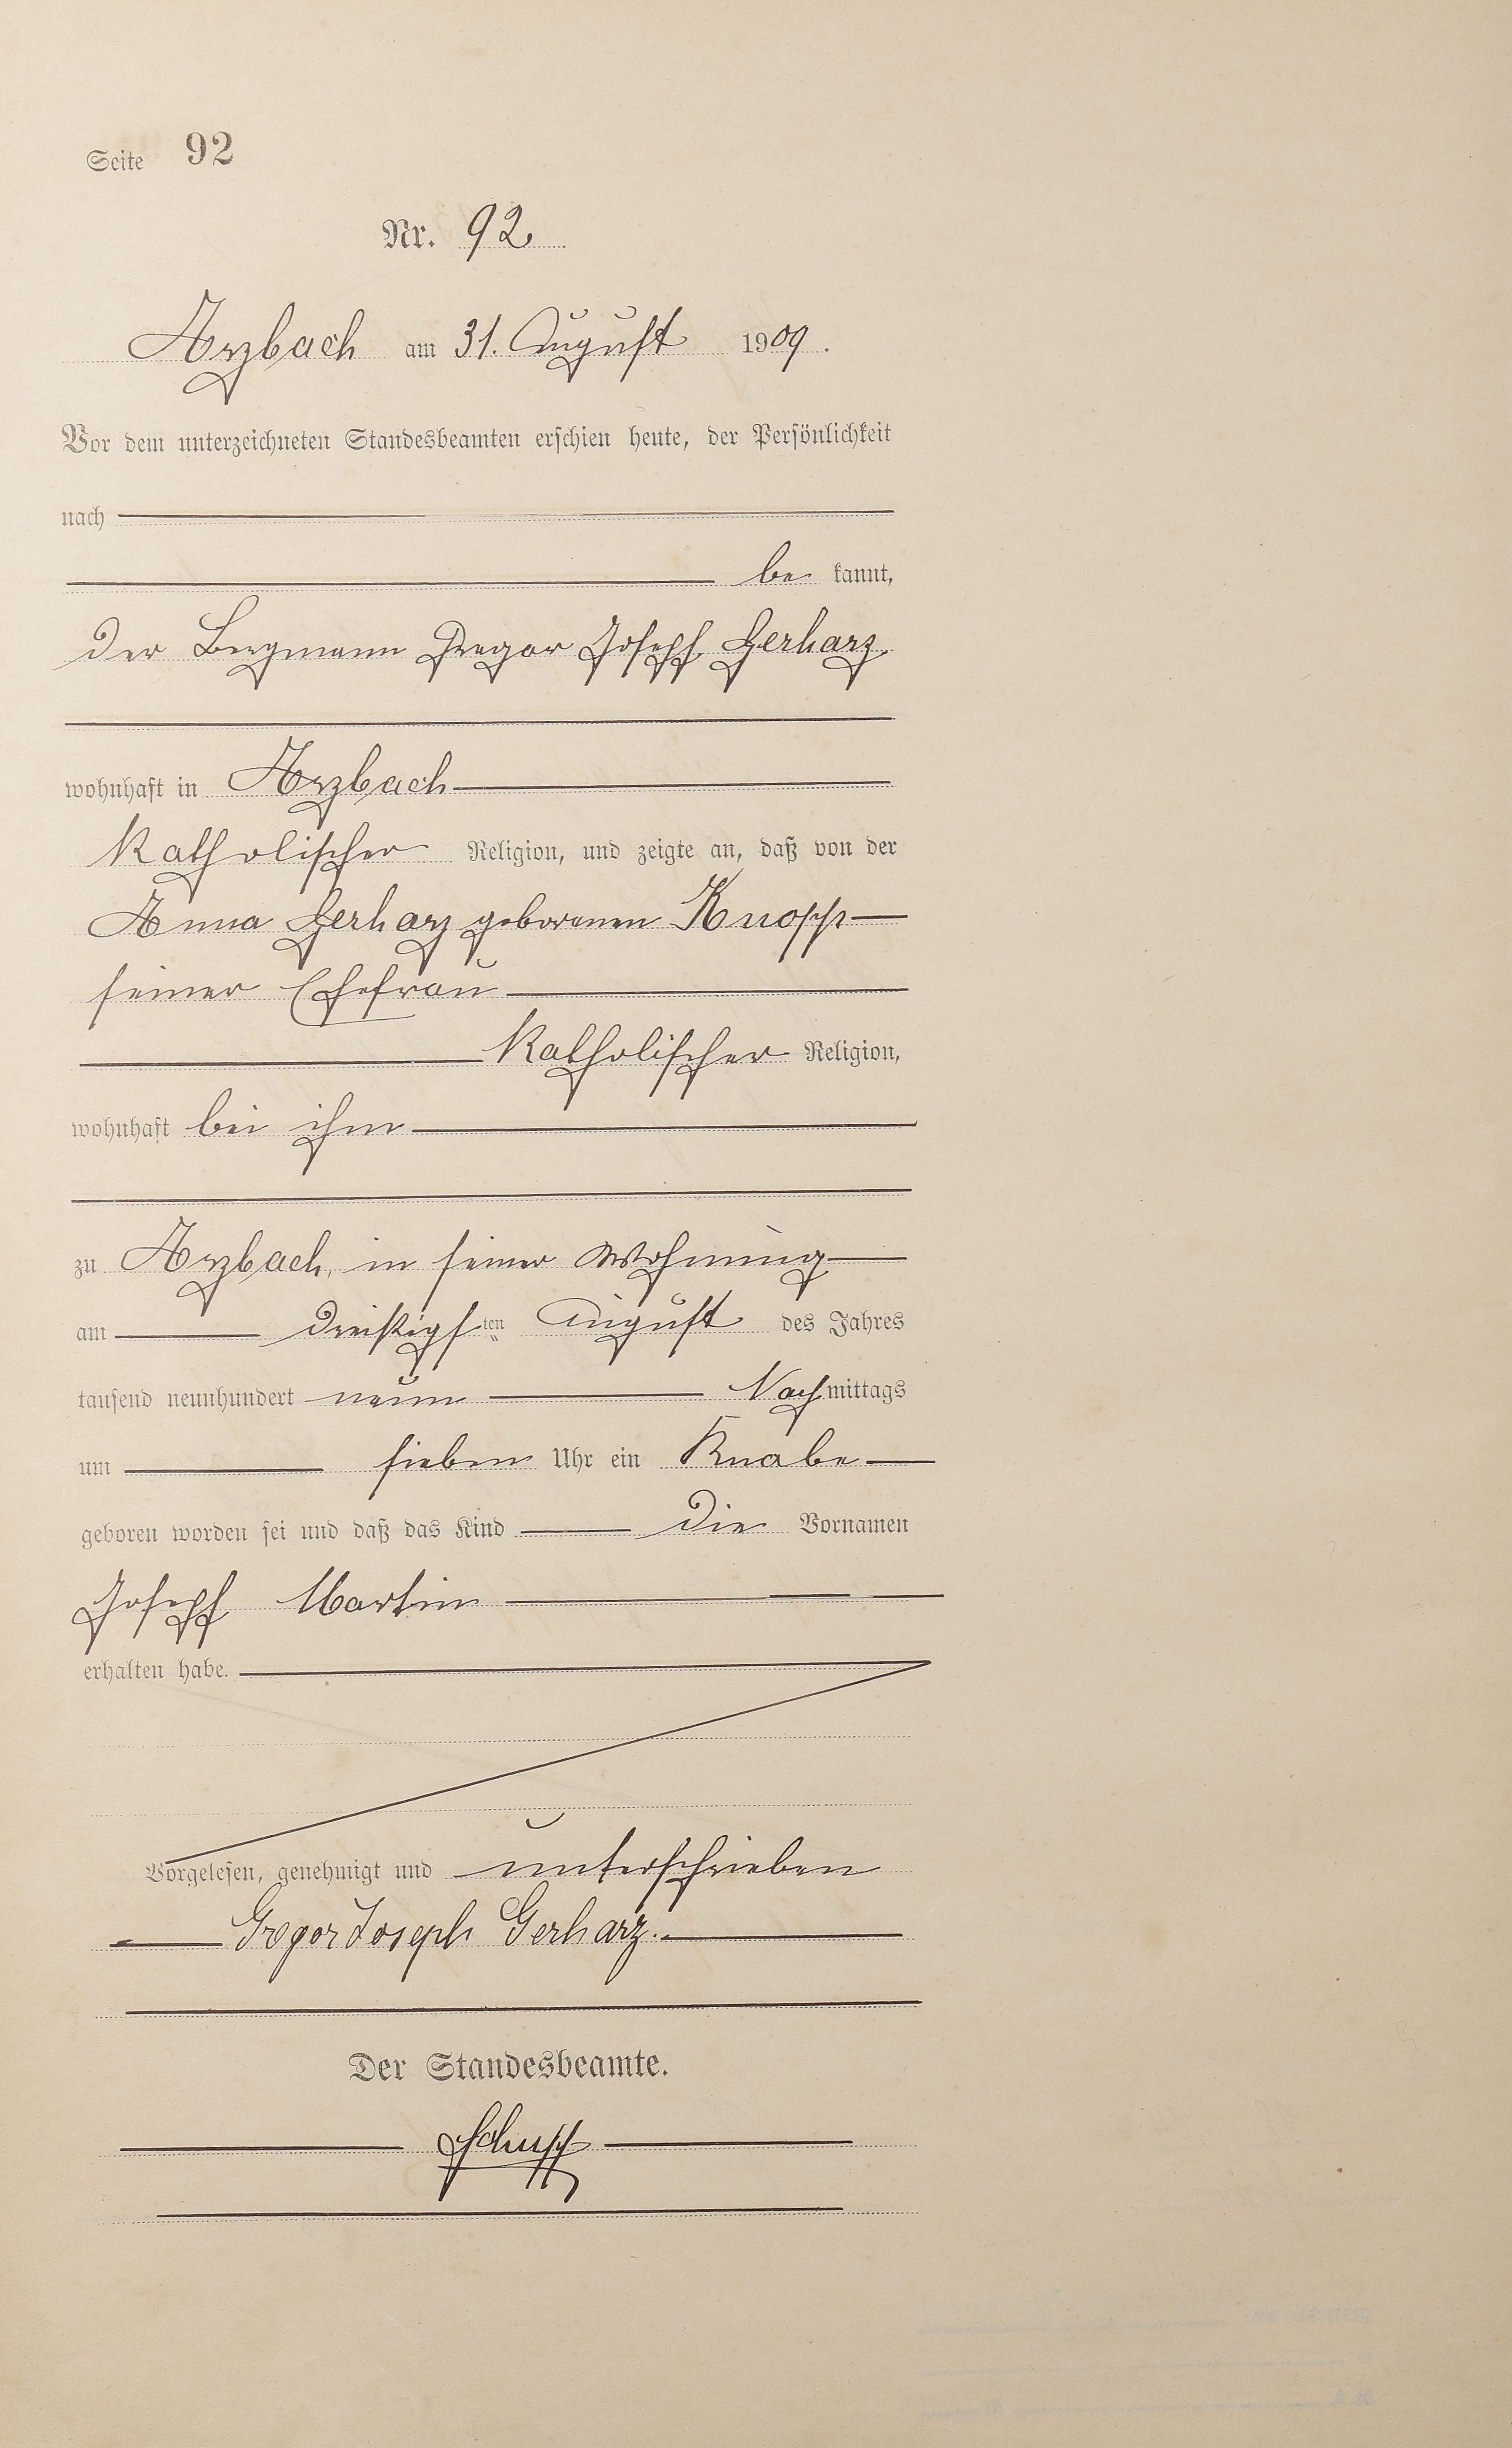 Seite 92
Nr. 92
Arzbach am 31. August 1909.
Vor dem unterzeichneten Standesbeamten erschien heute, der Persönlichkeit
nach
be kannt,
der Bergmann Gregor Joseph Gerharz
wohnhaft in Arzbach
katholischer Religion, und zeigte an, daß von der
Anna Gerharz geborenen Knopp
seiner Ehefrau
katholischer Religion,
wohnhaft bei ihm
zu Arzbach, in seiner Wohnung
am dreißigsten August des Jahres
tausend neunhundert neun Nachmittags
um sieben Uhr ein Knabe
geboren worden sei und daß das Kind die Vornamen
Joseph Martin
erhalten habe.
Vorgelesen, genehmigt und unterschrieben
Gregor Joseph Gerharz.
Der Standesbeamte.
Schupp